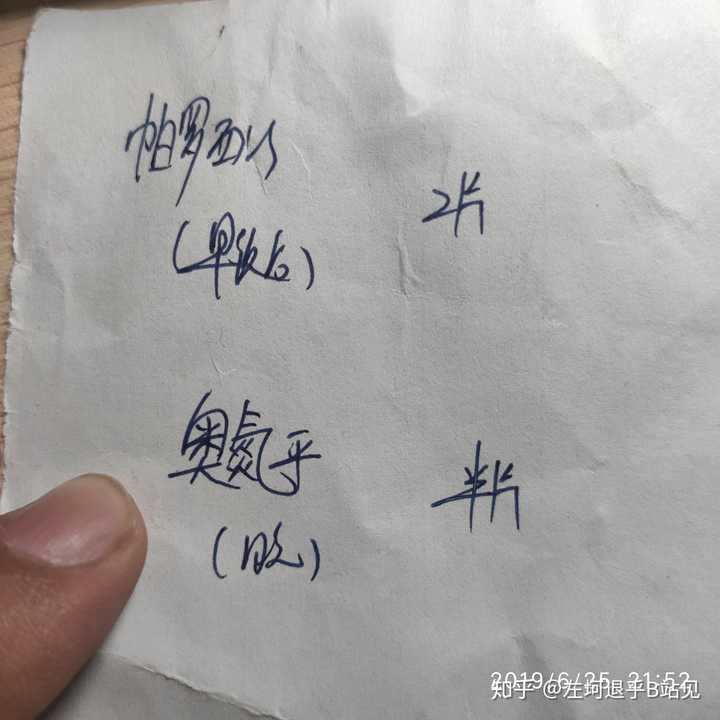 帕罗西汀 2片
(早饭后)
奥氮平 半片
(晚)
2019/6/25 21:52
知乎 @左坷退乎B站见